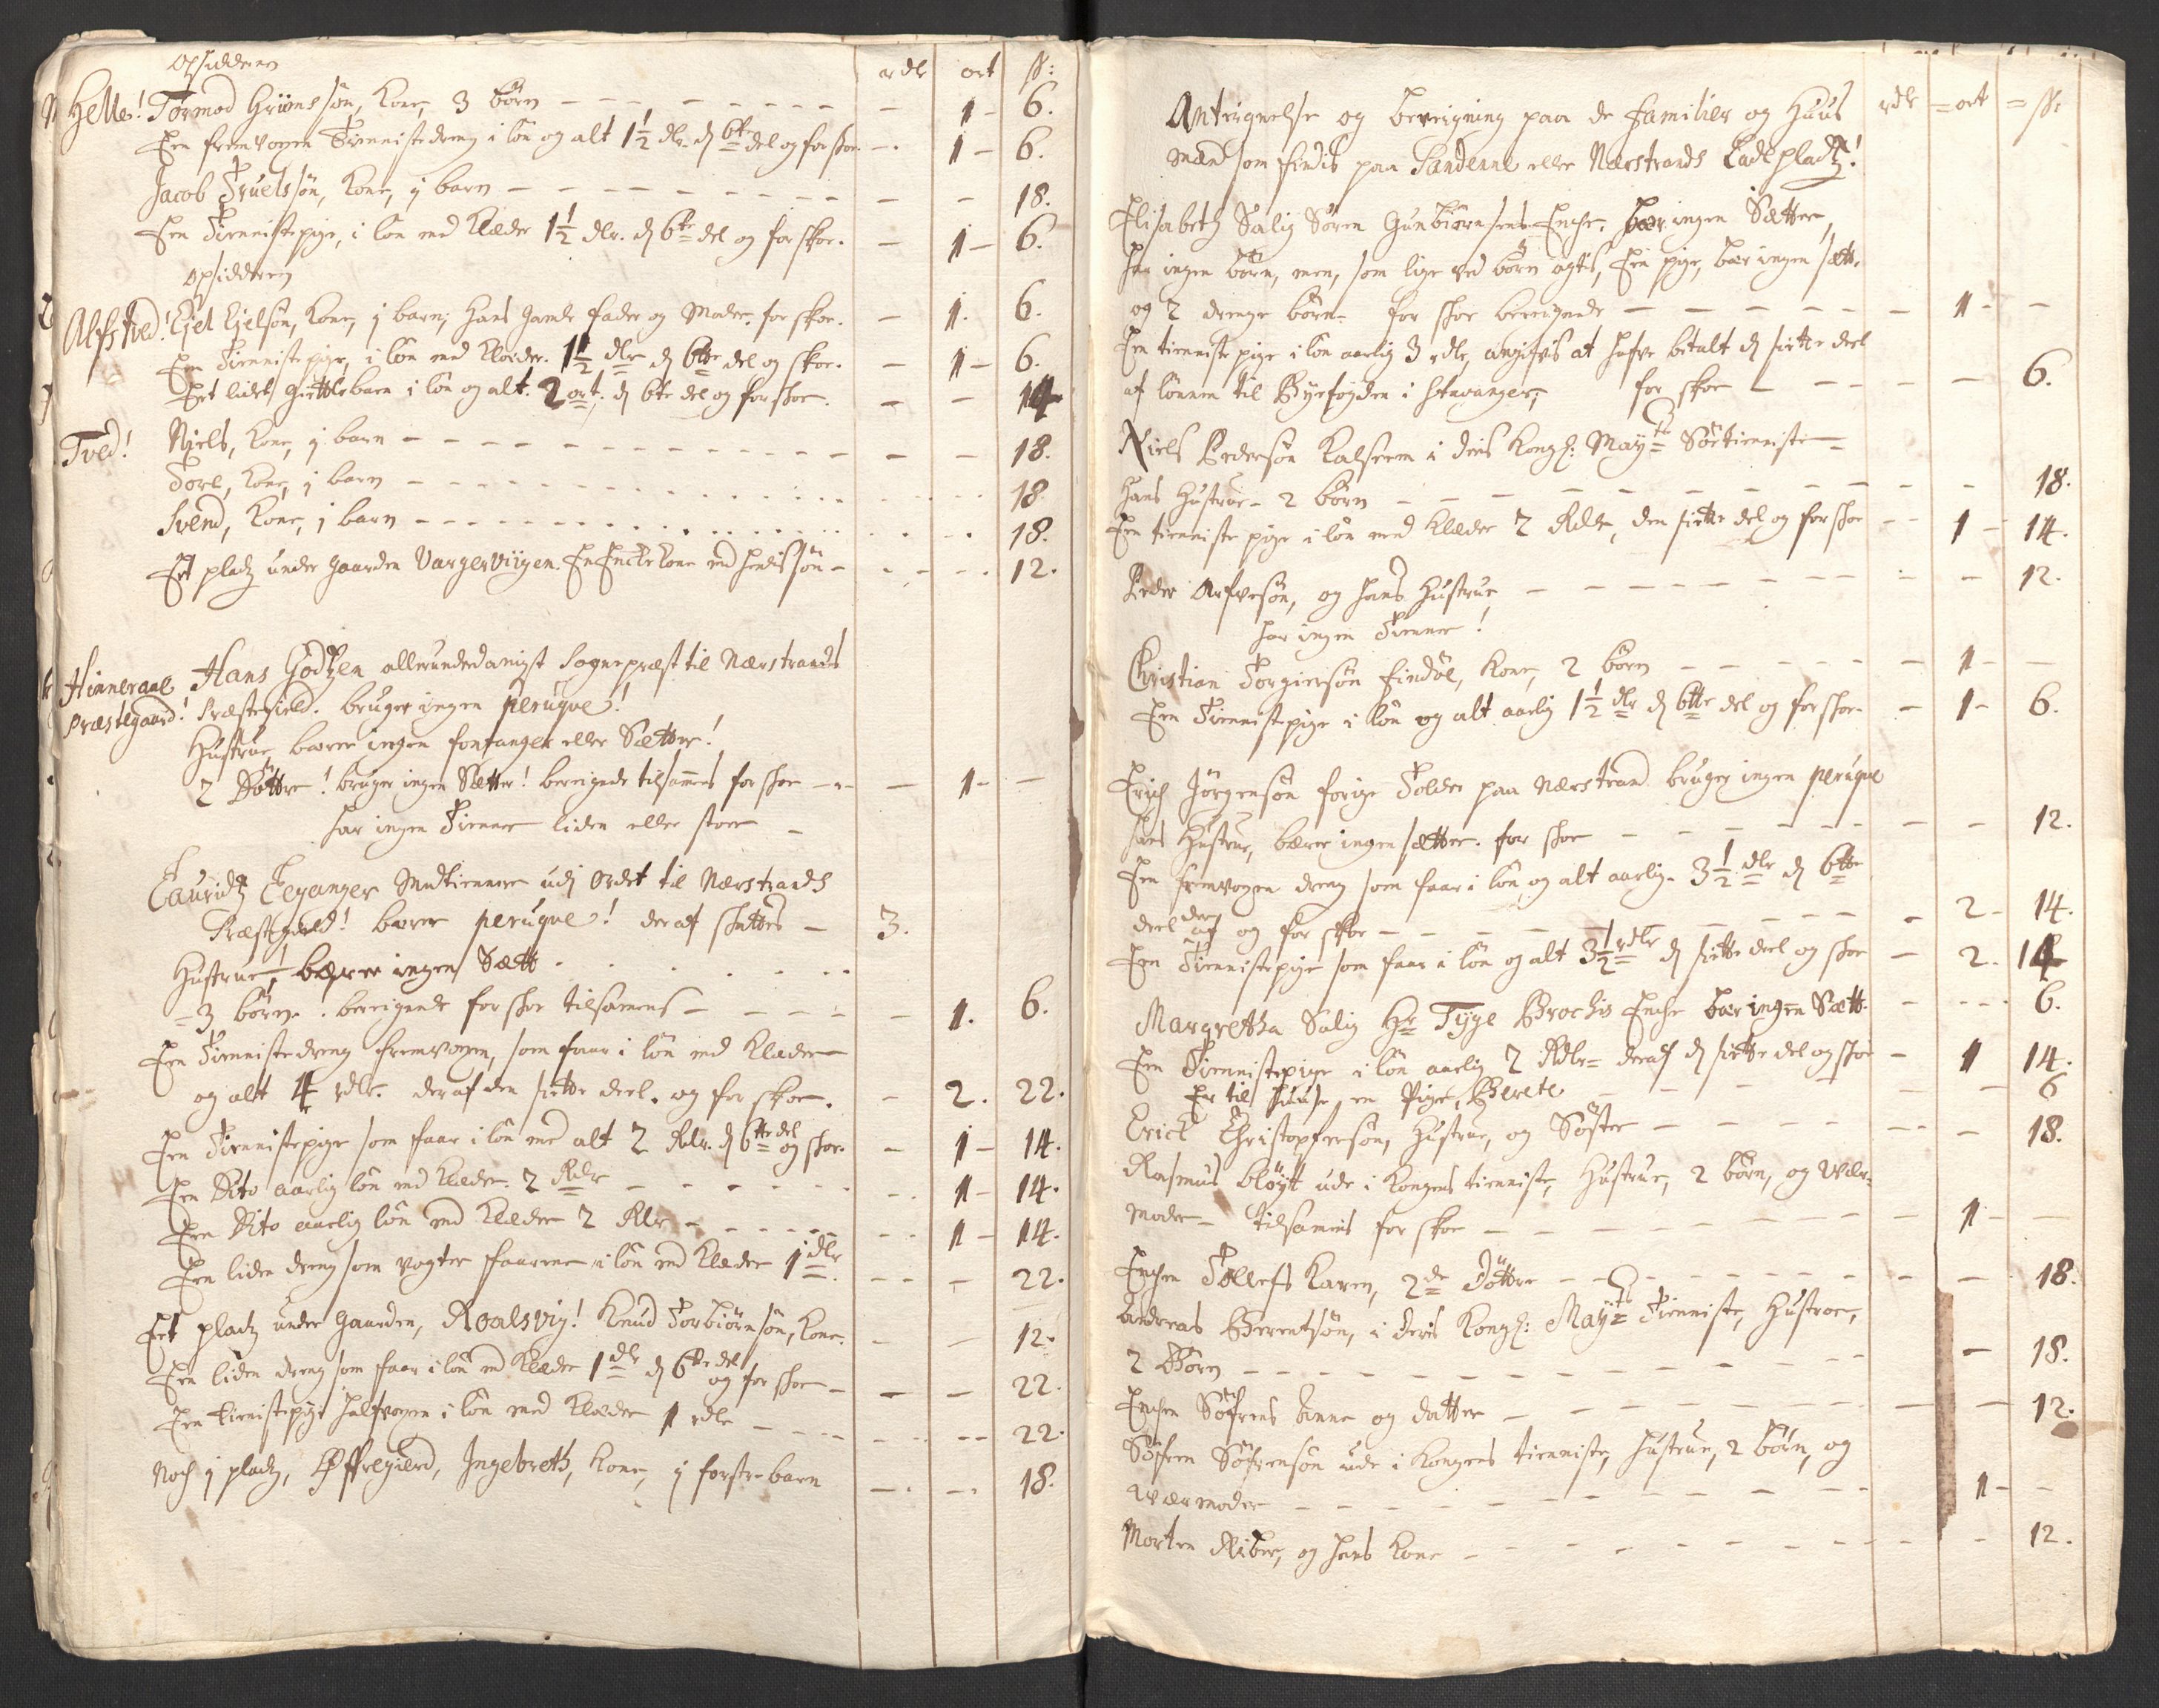 Opsidderen
rdlr ort ß:
Helle! Tormod Grimssøn, Kone, 3 børn - - - 1 - 6.
Een fremvoxen Tiennistedreng i løn og alt 1½ dlr. d 6te del og for skoe - 1 - 6.
Jacob Truelssøn, Kone, j barn - - - 18.
Een Tiennistepige, i løn med Klæder 1½ dlr. d 6te del og for skoe. - 1 - 6.
Opsidderen
Alfstved! Kjel Kjelsøn, Kone, j barn, Hans gamle fader og Moder. for skoe. - 1. 6.
En Tiennistepige, i løn med Klæder. 1½ dlr d 6te del og skoe. - 1 - 6.
Eet lidet giettlebarn i løn og alt. 2 ort. d 6te del og for skoe. - - 14
Tved! Niels, Kone, j barn - - - 18.
Tore, Kone, j barn - - - 18
Svend, Kone, j barn - - - 18.
Eet pladtz under gaarden Vargeviigen. En Enckekone med hendis søn - - - 12.
Hinneraae Præstegaard! Hans Godtzen allerunderdanigst Sogne præst til Nærstrands
Præstegield. bruger ingen peruque!
Hustrue bærer ingen fontanger eller Sætter!
2 Døttre! bruger ingen Sætter! beregnede tilsamens for skoe - - 1 - -
har ingen Tienner liden eller stoer -
Lauridtz Leganger Medtienner udj Ordet til Nærstrands
Præstegield! bærer peruque! der af skattes - 3.
Hustrue! bærer ingen Sætt - - -
- 3 børn. beregnede for skoe tilsamens - - - 1. 6.
Een Tiennistedreng fremvoxen, som faar i løn med Klæder
og alt 4 rdlr. der af den siette deel. og for skoe. - 2. 22.
Een Tiennistepige som faar i løn med alt 2 Rdlr. d 6te del og skoe. - 1 - 14.
Een Dito aarlig løn med Klæder. 2 Rdlr - - - 1 - 14.
Een Dito aarlig løn med Klæder 2 Rdlr - - - 1 - 14.
Een liden dreng som vogter faarene i løn med Klæder 1 dlr - - - 22.
Eet pladtz under gaarden, Roalsvig! Knud Torbiørnsøn, Kone. - - 12.
Een liden dreng som faar i løn med Klæder 1 dlr d 6te del og for skoe - - - 22.
Een tiennistepige halfvoxen i løn med Klæder 1 rdlr - - - 22.
Noch j pladtz, Øffregierd, Ingebreth, Kone, j forster barn - - 18.
Antegnelse og beregning paa de familier og Huus rdlr = ort = ß
mænd som findis paa Sandenne eller Nærstrands Ladepladtz!
Elisabeth Salig Søren Gunbiørnsens Encke. bær ingen Sætter,
har ingen børn, men, som lige ved børn agtis, Een pige, bær ingen sætt.
og 2 drenge børn. for skoe beregnede - - - 1 - -
Een tienniste pige i løn aarlig 3 rdlr, angifvis at hafve betalt d siette deel
af lønnen til Byefogden i Stavanger, for skoe - - - 6.
Niels Pedersøn Kalseem i deris Kongl: Mayts Søetienniste
hans Hustrue - 2 børn - - - 18.
Een tienniste pige i løn med Klæder 2 Rdlr, den siette del og for skoe - 1 - 14.
Peder Arfvesøn, og hans Hustrue - - - 12.
har ingen Tienner!
Christian Torgiersøn Findøe, Kone, 2 børn - - - 1 - -
Een Tiennistepige i løn og alt aarlig 1½ dlr d 6te del og for skoe - 1 - 6.
Erich Jørgensøn forige Tolder paa Nærstrand bruger ingen peruque
hans Hustrue, bærer ingen sætter. for skoe - - - 12.
Een fremvoxen dreng som faar i løn og alt aarlig. 3½ dlr d 6te
deel der af og for skoe - - - 2 - 14.
Een Tiennistepige som faar i løn og alt 3½ rdlr d siette deel og skoe - 2. 14
Margretha Salig Hr Tyge Brochis Encke bær ingen Sætt. - - - 6.
Een Tiennistepige i løn aarlig 2 Rdlr - deraf d siette del og skoe - 1 14.
Er til huuse, en Pige, Berete - - - 6
Erick Christophersøn, Hustrue, og Søster - - - 18.
Rasmus Bløytt ude i Kongens tienniste, Hustrue, 2 børn, og Vær-
moder - tilsamens for skoe - - - 1 - -
Enchen Tollefs Karen, 2de Døttre - - - 18.
Andreas Berentsøn, i deris Kongl: Mayts Tienniste, Hustroe,
2 Børn - - - 18.
Enchen Søfrens Anne og datter - - - 12.
Søfren Søfrensøn ude i Kongens tienniste, hustrue, 2 børn, og
Værmoder - - - 1 - -
Morten Riber, og hans Kone - - - 12.